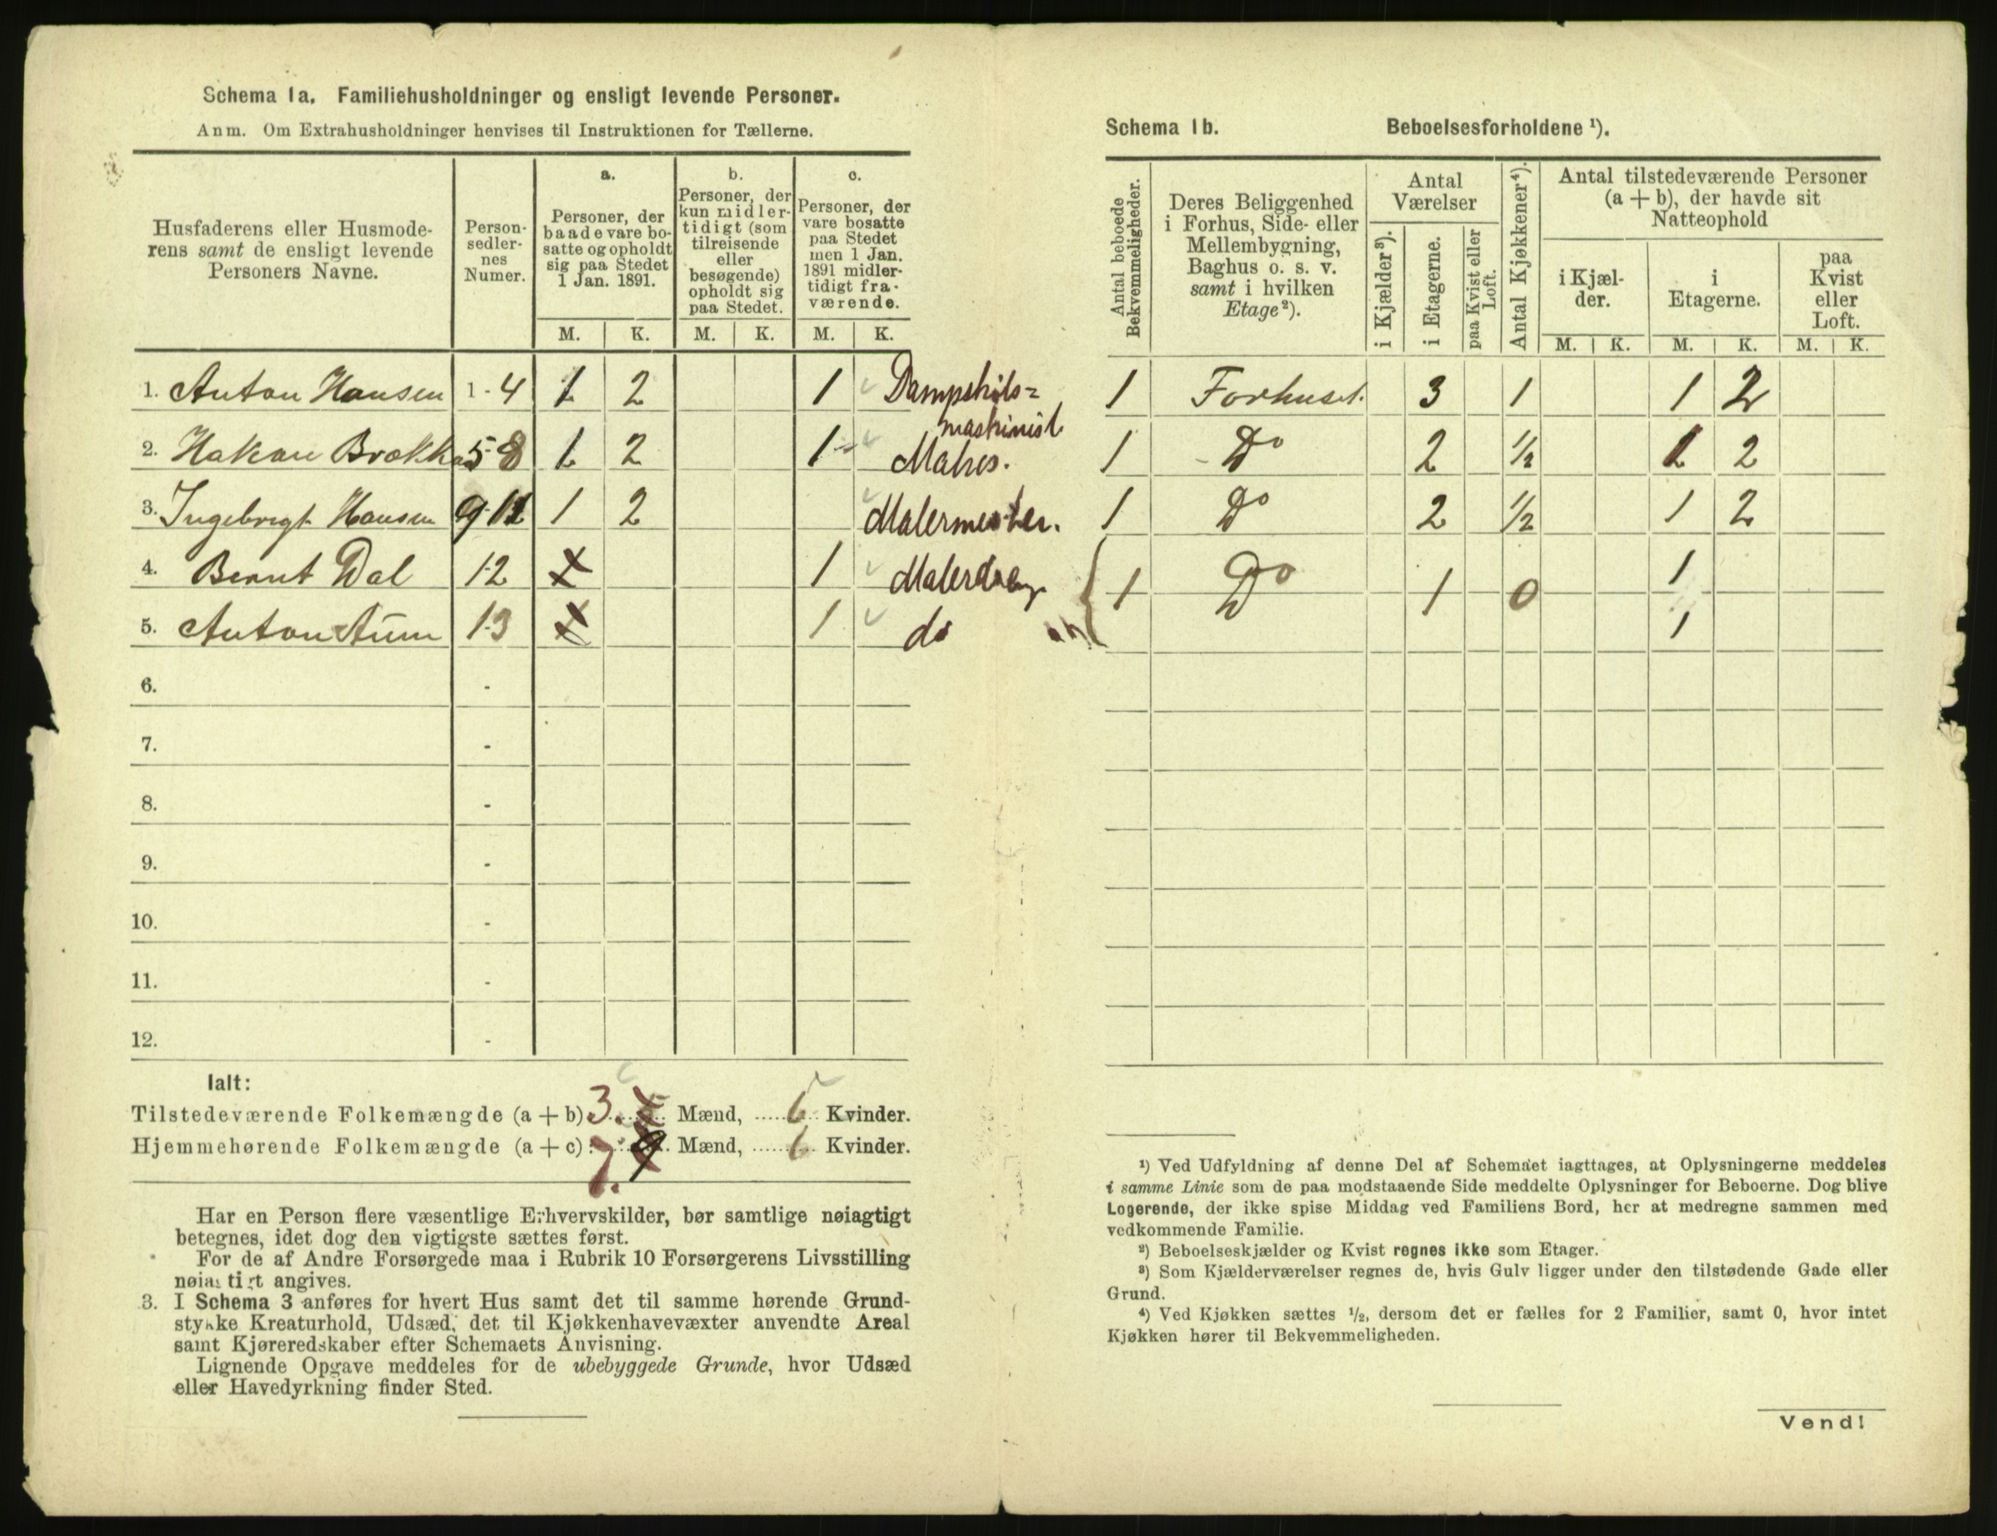 Schema 1a. Familiehusholdninger og ensligt levende Personer.
Anm. Om Extrahusholdninger henvises til Instruktionen for Tællerne.
Husfaderens eller Husmoderens samt de ensligt levende Personers Navne.
Personsedlernes Numer.
a. Personer, der baade vare bosatte og opholdt sig paa Stedet 1 Jan. 1891.
b. Personer, der kun midlertidigt (som tilreisende eller besøgende) opholdt sig paa Stedet.
c. Personer, der vare bosatte paa Stedet men 1 Jan. 1891 midlertidigt fraværende.
M. K. M. K. M. K.
1. Anton Hansen 1-4 1 2 1 Dampskibsmaskinist
2. Hakan 5-8 1 2 1
3. Ingebrigt Hansen 9-11 1 2 Malermester.
4. Bernt Dal 12 x 1
5. Anton 13 x 1 do
6. -
7. -
8. -
9. -
10. -
11. -
12. -
Ialt:
Tilstedeværende Folkemængde (a + b) 3. Mænd, 6 Kvinder.
Hjemmehørende Folkemængde (a + c): 7. Mænd, 6 Kvinder.
Har en Person flere væsentlige Erhvervskilder, bør samtlige nøiagtigt
betegnes, idet dog den vigtigste sættes først.
For de af Andre Forsørgede maa i Rubrik 10 Forsørgerens Livsstilling
nøiagtigt angives.
3. I Schema 3 anføres for hvert Hus samt det til samme hørende Grund-
stykke Kreaturhold, Udsæd, det til Kjøkkenhavevæxter anvendte Areal
samt Kjøreredskaber efter Schemaets Anvisning.
Lignende Opgave meddeles for de ubebyggede Grunde, hvor Udsæd
eller Havedyrkning finder Sted.
Schema 1b. Beboelsesforholdene ¹).
Antal beboede Bekvemmeligheder.
Deres Beliggenhed i Forhus, Side- eller Mellembygning, Baghus o. s. v. samt i hvilken Etage²).
Antal Værelser
i Kjælder³).
i Etagerne.
paa Kvist eller Loft.
Antal Kjøkkener⁴).
Antal tilstedeværende Personer (a + b), der havde sit Natteophold
i Kjælder.
i Etagerne.
paa Kvist eller Loft.
M. K. M. K. M. K.
1 Forhuset. 3 1 1 2
1 Do 2 1/2 1 2
1 Do 2 1/2 1 2
1 Do 1 0 1
1
¹) Ved Udfyldning af denne Del af Schemaet iagttages, at Oplysningerne meddeles
i samme Linie som de paa modstaaende Side meddelte Oplysninger for Beboerne. Dog blive
Logerende, der ikke spise Middag ved Familiens Bord, her at medregne sammen med
vedkommende Familie.
²) Beboelseskjælder og Kvist regnes ikke som Etager.
³) Som Kjælderværelser regnes de, hvis Gulv ligger under den tilstødende Gade eller
Grund.
⁴) Ved Kjøkken sættes ½, dersom det er fælles for 2 Familier, samt 0, hvor intet
Kjøkken hører til Bekvemmeligheden.
Vend!